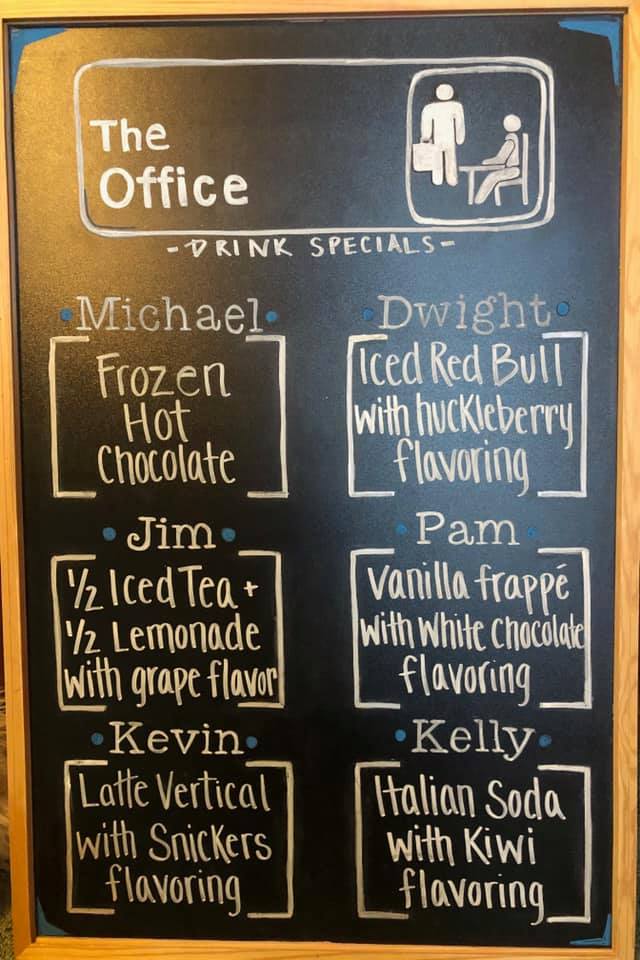 The
Office
-DRINK SPECIALS-
·Michael·
Frozen
Hot
Chocolate
·Dwight·
Iced Red Bull
with huckleberry
flavoring
·Jim·
½ Iced Tea +
½ Lemonade
with grape flavor
·Pam·
Vanilla frappé
with white chocolate
flavoring
·Kevin·
Latte Vertical
with Snickers
flavoring
·Kelly·
Italian Soda
with Kiwi
flavoring